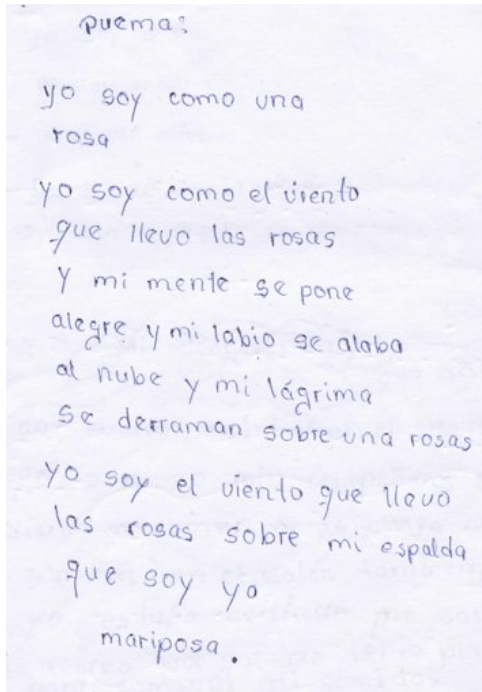 puema:
yo soy como una
rosa
yo soy como el viento
que llevo las rosas
y mi mente se pone
alegre y mi labio se alaba
al nube y mi lágrima
se derraman sobre una rosas
yo soy el viento que llevo
las rosas sobre mi espalda
que soy yo
mariposa.